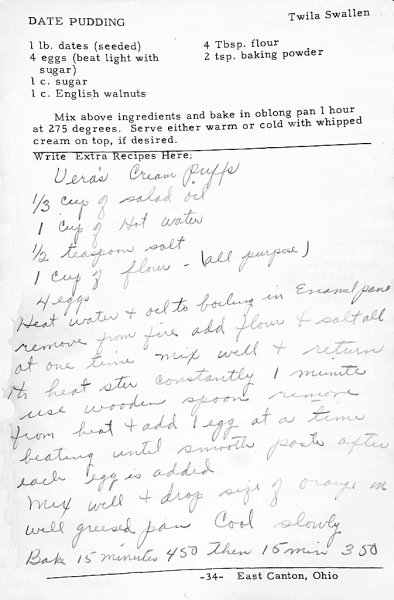 DATE PUDDING Twila Swallen
1 lb. dates (seeded)
4 eggs (beat light with
sugar)
1 c. sugar
1 c. English walnuts
4 Tbsp. flour
2 tsp. baking powder
Mix above ingredients and bake in oblong pan 1 hour
at 275 degrees. Serve either warm or cold with whipped
cream on top, if desired.
Write Extra Recipes Here:
Vera's Cream Puffs
1/3 cup of salad oil
1 cup of Hot water
1/2 teaspoon salt
1 cup of flour - (all purpose)
4 eggs
Heat water & oil to boiling in Enamel pane
remove from fire add flour & salt all
at one time mix well & return
to heat stir constantly 1 minute
use wooden spoon remove
from heat & add 1 egg at a time
beating until smooth paste after
each egg is added
Mix well & drop size of orange on
well greesed pan Cool slowly
Bake 15 minutes 450 Then 15 min 350
-34- East Canton, Ohio